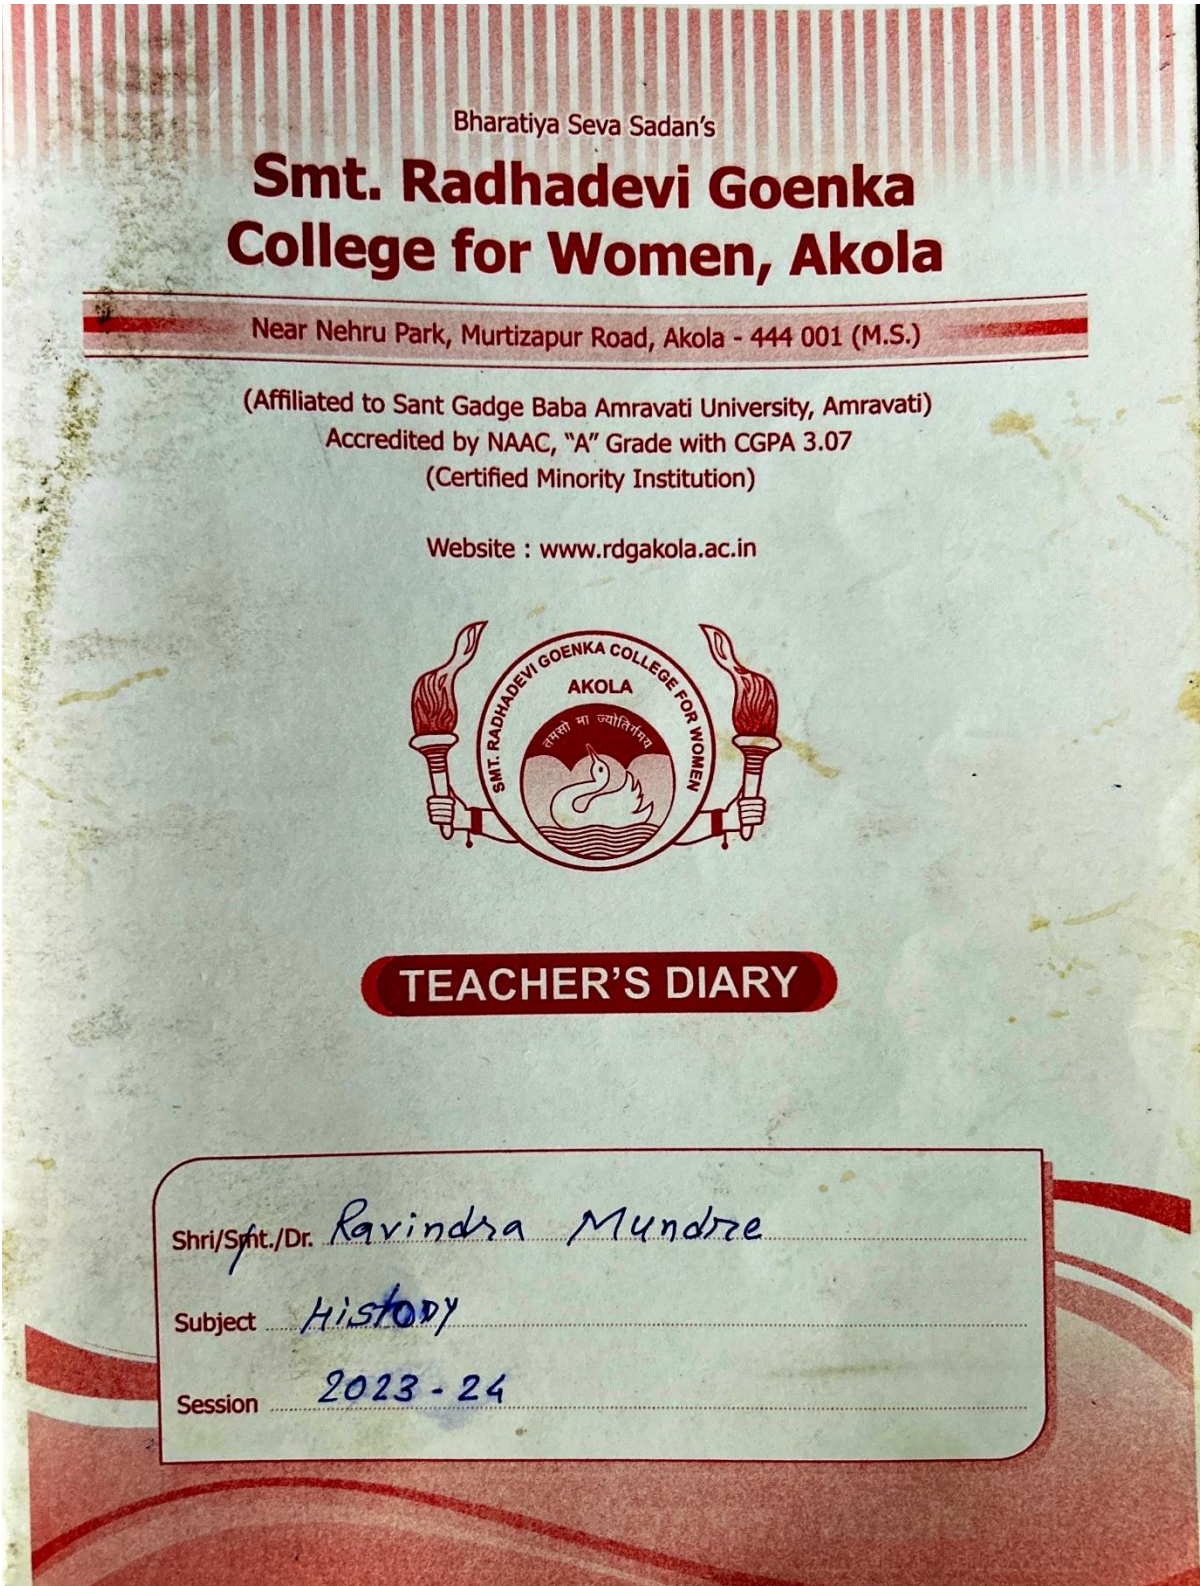 Bharatiya Seva Sadan's
Smt. Radhadevi Goenka
College for Women, Akola
Near Nehru Park, Murtizapur Road, Akola - 444 001 (M.S.)
(Affiliated to Sant Gadge Baba Amravati University, Amravati)
Accredited by NAAC, “A” Grade with CGPA 3.07
(Certified Minority Institution)
Website : www.rdgakola.ac.in
SMT. RADHADEVI GOENKA COLLEGE FOR WOMEN
AKOLA
तमसो मा ज्योतिर्गमय
TEACHER'S DIARY
Shri/Smt./Dr. Ravindra Mundre
Subject History
Session 2023-24